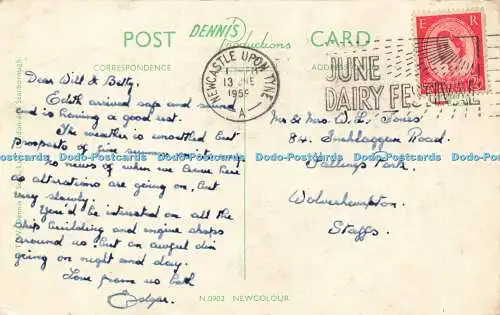 DENNIS
Productions
POST CARD
CORRESPONDENCE
ADDRESS
NEWCASTLE UPON TYNE
13 JNE
195
A
JUNE
DAIRY FESTIVAL
E R
Dear Will & Betty,
Edith arrived safe and sound
and is having a good rest.
The weather is unsettled but
prospects of fine summer
no news of when we
as alterations are going on, but
very slowly.
You'd be interested on all the
ship building and engine shops
around us but an awful din
going on night and day.
Love from us both
Edgar.
Mr & Mrs W. L. Jones
84. Road.
Fallings Park.
Wolverhampton.
Staffs.
Dodo-Postcards Dodo-Postcards Dodo-Postcards Dodo-Postcards Dodo-Postcards
N.0902 NEWCOLOUR